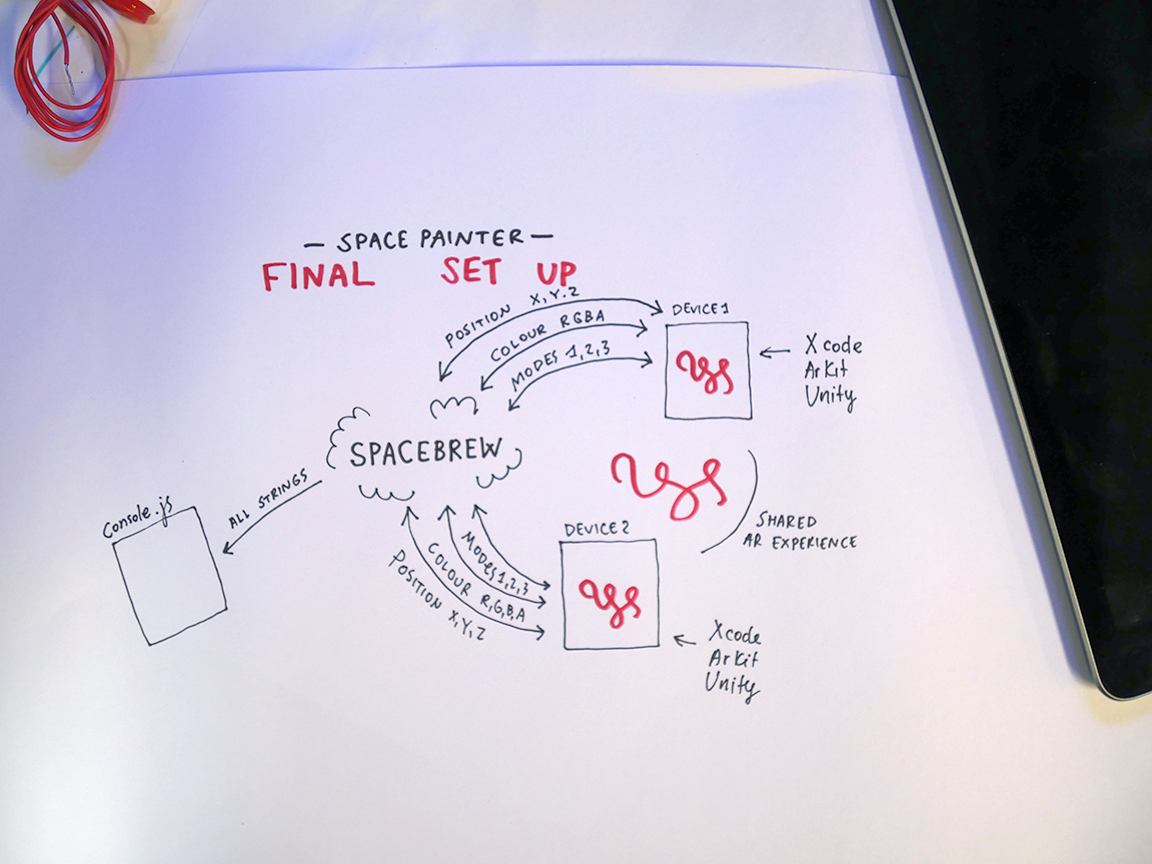 — SPACE PAINTER —
FINAL SET UP
POSITION X,Y.Z
COLOUR RGBA
MODES 1,2,3
DEVICE 1
Xcode
ArKit
Unity
SPACEBREW
ALL STRINGS
Console.js
SHARED
AR EXPERIENCE
DEVICE 2
MODES 1,2,3
COLOUR R,G,B,A
POSITION X,Y,Z
Xcode
ArKit
Unity